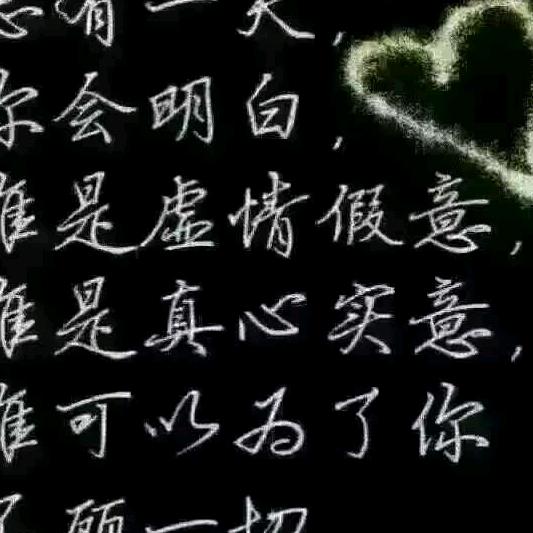 总有一天，
你会明白，
谁是虚情假意，
谁是真心实意，
谁可以为了你
不顾一切